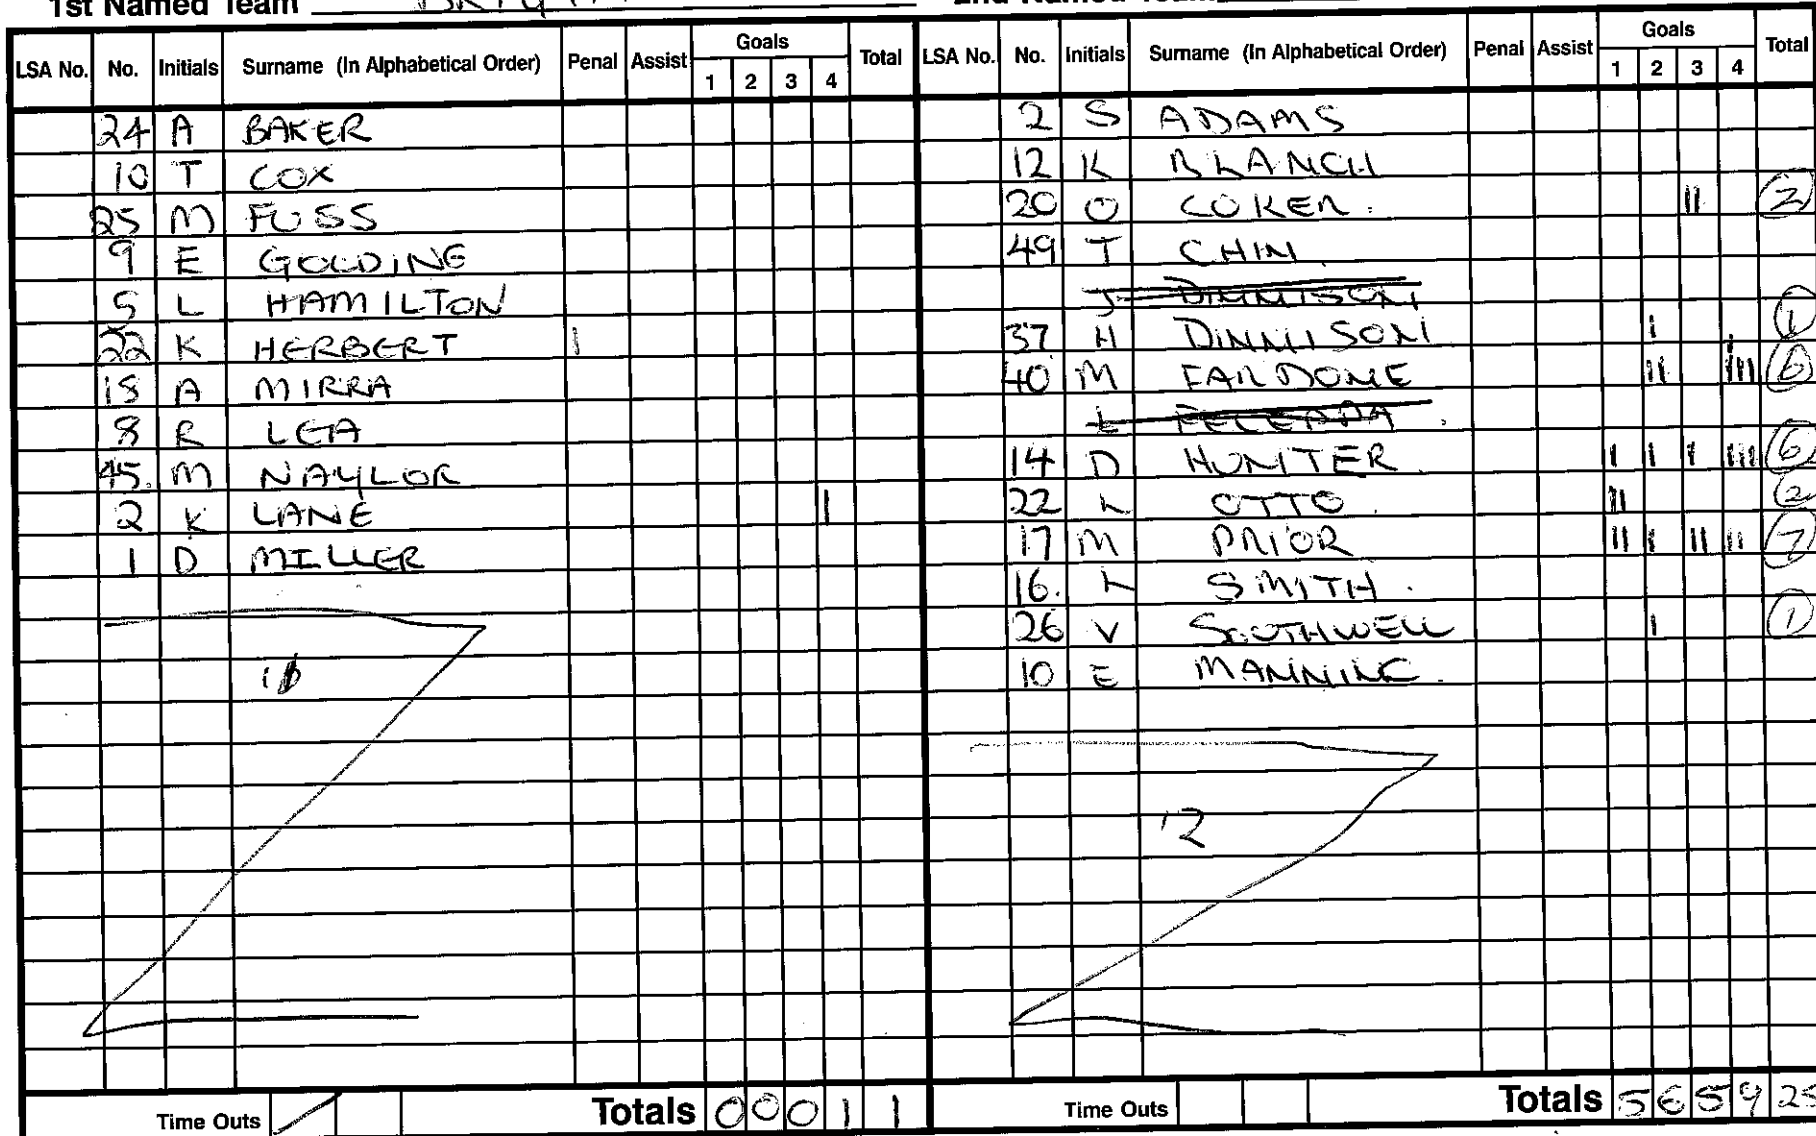 1st Named Team
LSA No. No. Initials Surname (In Alphabetical Order) Penal Assist Goals 1 2 3 4 Total
24 A BAKER
10 T COX
25 M FUSS
9 E GOLDING
5 L HAMILTON
22 K HERBERT |
18 A MIRRA
8 R LEA
45. M NAYLOR
2 K LANE |
1 D MILLER
Time Outs / Totals 0 0 0 1 1
LSA No. No. Initials Surname (In Alphabetical Order) Penal Assist Goals 1 2 3 4 Total
2 S ADAMS
12 K BLANCH
20 O COKER. || 2
49 T CHIN
J DINNISON
37 H DINNISON | 1
40 M FARDONE ||
14 D HUNTER | | | ||| 6
22 L OTTO. || 2
17 M PRIOR || | || || 7
16. L SMITH.
26 V SOUTHWELL | 1
10 E MANNING.
12
Time Outs Totals 5 6 5 9 25